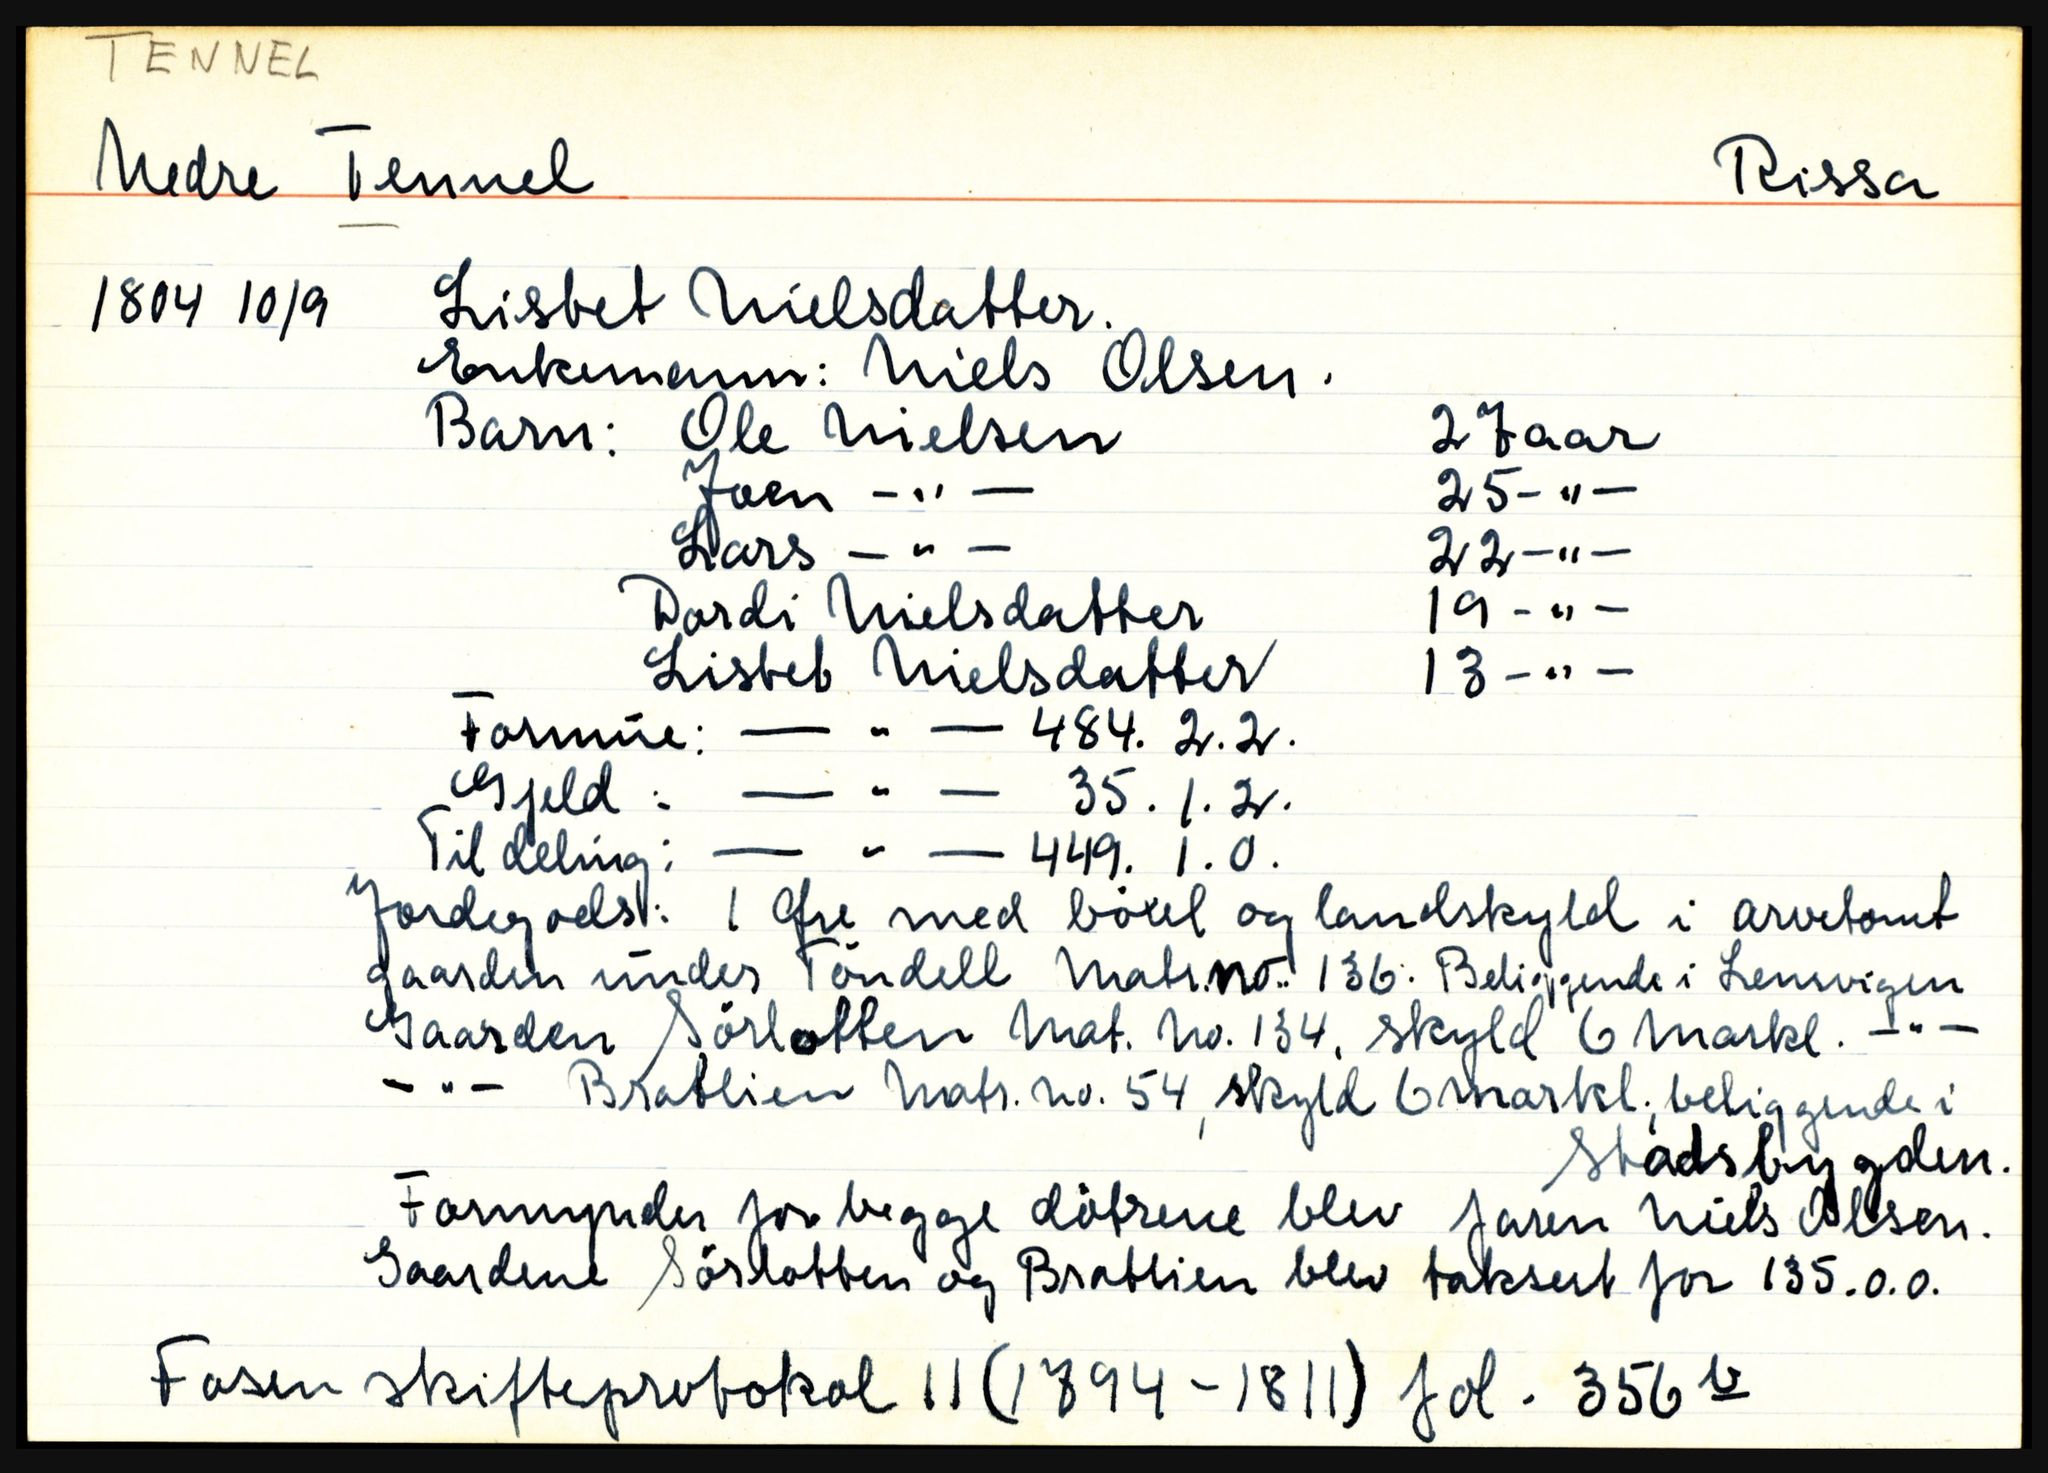 TENNEL
Nedre Tennel Rissa
1804 10/9 Lisbet Nielsdatter.
Enkemann: Niels Olsen.
Barn: Ole Nielsen 27 aar
Joen -"- 25-"-
Lars -"- 22-"-
Dordi Nielsdatter 19-"-
Lisbet Nielsdatter 13-"-
Formue: — " — 484. 2. 2.
Gjeld: — " — 35. 1. 2.
Til deling: — " — 449. 1. 0.
Jordegods: 1 Øre med böxel og landskyld i arvetomt
gaarden under Töndell Matr.no. 136. Beliggende i Lensvigen
Gaarden Sörlotten Mat. No. 134, skyld 6 Markl. -"-
-"- Brattlien Matr. no. 54, skyld 6 Markl., beliggende i
Stadsbygden.
Formynder for begge dötrene blev faren Niels Olsen.
Gaardene Sörlotten og Brattlien blev taksert for 135.0.0.
Fosen skifteprotokol 11 (1794-1811) fol. 356 b